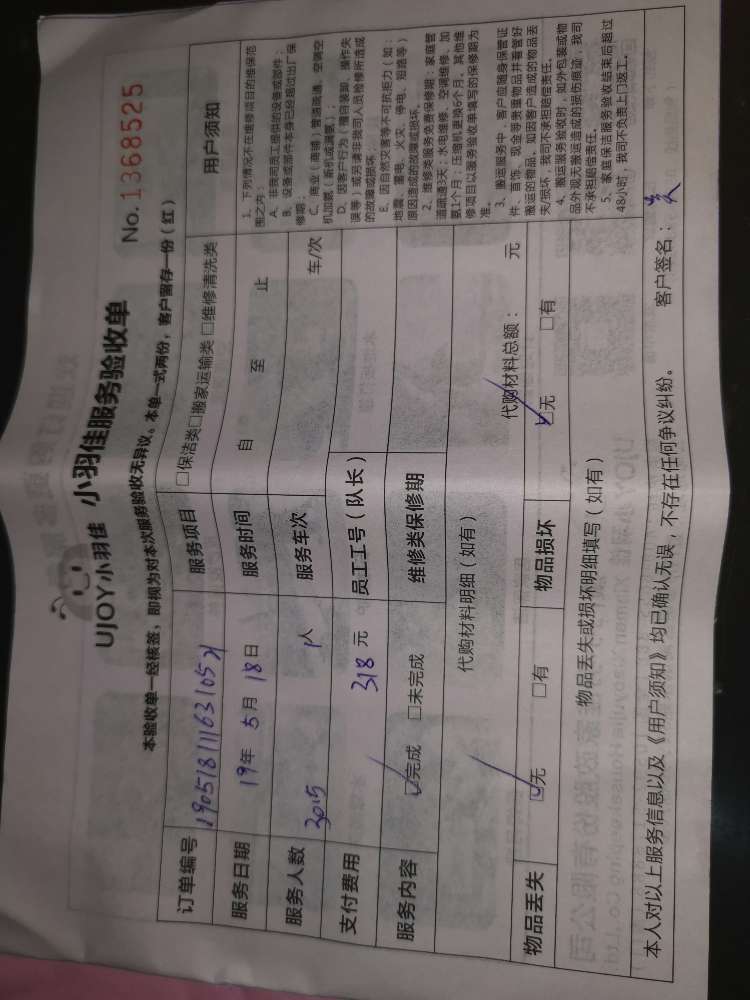 UJOY小羽佳 小羽佳服务验收单
No. 1368525
本验收单一经核签，即视为对本次服务验收无异议。本单一式两份，客户留存一份（红）
订单编号 服务项目 □保洁类□搬家运输类 □维修清洗类
服务日期 19年 5月 18日 服务时间 自 至 止
服务人数 1人 服务车次 车/次
支付费用 318 元 员工工号（队长） 3015
服务内容 ☑完成 □未完成 维修类保修期
代购材料明细（如有） 代购材料总额： 元
物品丢失 ☑无 □有 物品损坏 ☑无 □有
物品丢失或损坏明细填写（如有）
用户须知
1、下列情况不在维修项目的维保范
围之内：
A、非我司员工提供的设备或部件；
B、设备或部件本身已经超过出厂保
修期；
C、商业（商铺）管道疏通、空调空
机加氨（新机或漏氨）；
D、因客户行为（擅自装卸、操作失
误等）或另请非我司人员检修所造成
的故障或损坏；
E、因自然灾害等不可抗拒力（如：
地震、雷电、火灾、停电、短路等）
原因造成的故障或损坏。
2、维修类服务免费保修期：家庭管
道疏通3天；水电维修、空调维修、加
氨1个月；压缩机更换6个月。其他维
修项目以服务验收单填写的保修期为
准。
3、搬运服务中，客户应随身保管证
件、首饰、现金等贵重物品并看管好
搬运的物品。如因客户造成的物品丢
失/损坏，我司不承担赔偿责任。
4、搬运服务验收时，如外包装或物
品外观无搬运造成的损伤痕迹，我司
不承担赔偿责任。
5、家庭保洁服务验收结束后超过
48小时，我司不负责上门返工。
本人对以上服务信息以及《用户须知》均已确认无误，不存在任何争议纠纷。 客户签名：